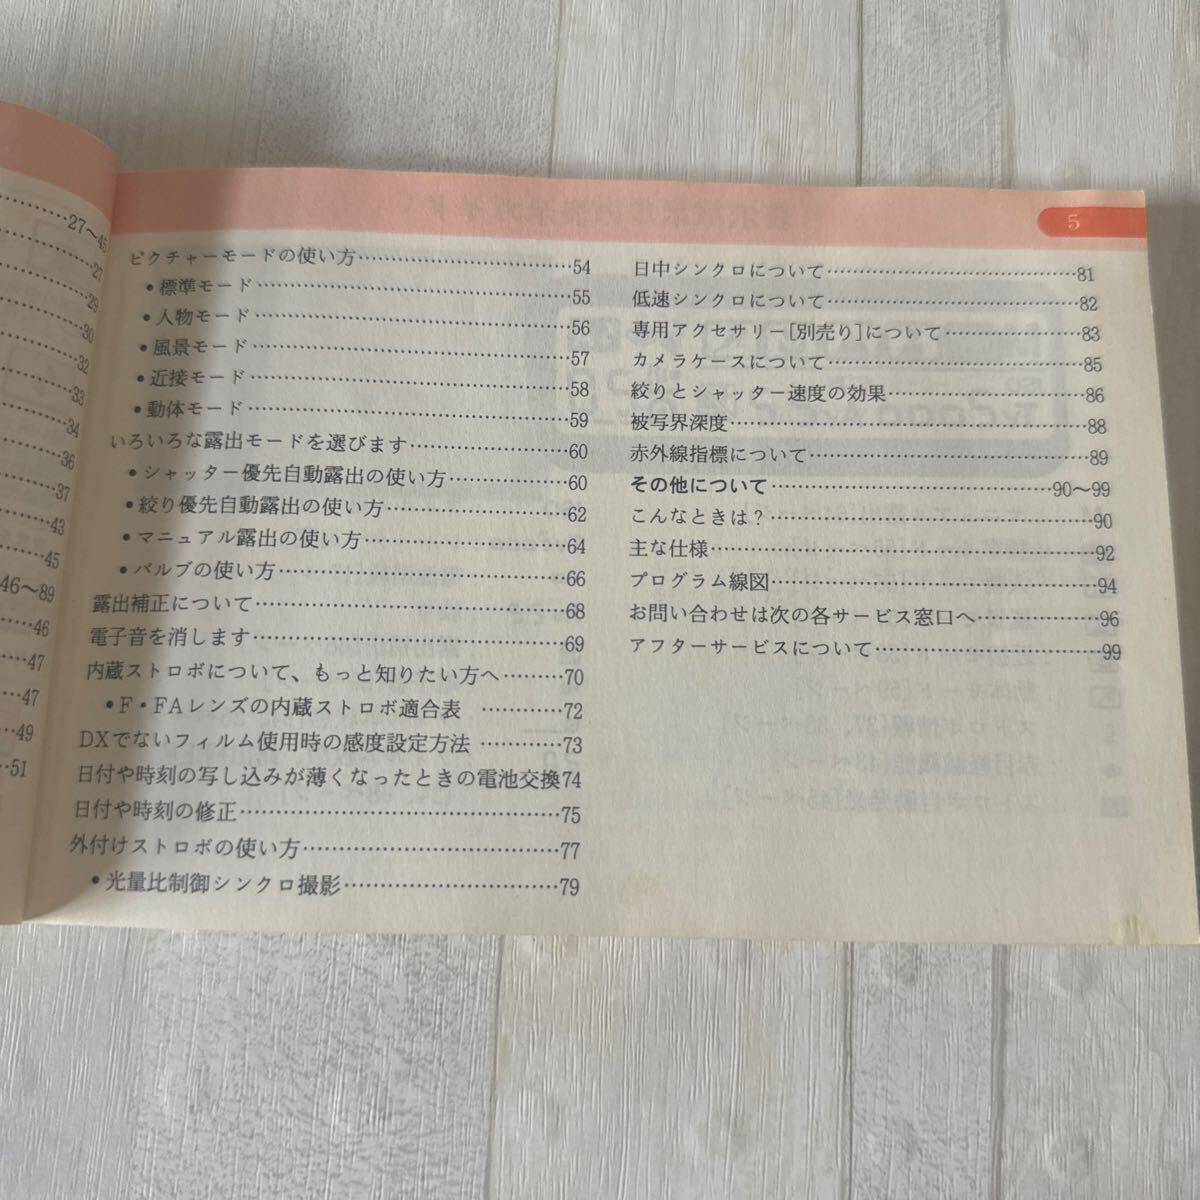 27〜45
27
29
30
32
33
34
36
37
43
45
46〜89
46
47
47
49
51
5
ピクチャーモードの使い方……54
•標準モード……55
•人物モード……56
•風景モード……57
•近接モード……58
•動体モード……59
いろいろな露出モードを選びます……60
•シャッター優先自動露出の使い方……60
•絞り優先自動露出の使い方……62
•マニュアル露出の使い方……64
•バルブの使い方……66
露出補正について……68
電子音を消します……69
内蔵ストロボについて、もっと知りたい方へ……70
•F・FAレンズの内蔵ストロボ適合表 ……72
DXでないフィルム使用時の感度設定方法 ……73
日付や時刻の写し込みが薄くなったときの電池交換74
日付や時刻の修正……75
外付けストロボの使い方……77
•光量比制御シンクロ撮影……79
日中シンクロについて……81
低速シンクロについて……82
専用アクセサリー[別売り]について……83
カメラケースについて……85
絞りとシャッター速度の効果……86
被写界深度……88
赤外線指標について……89
その他について……90〜99
こんなときは？……90
主な仕様……92
プログラム線図……94
お問い合わせは次の各サービス窓口へ……96
アフターサービスについて……99